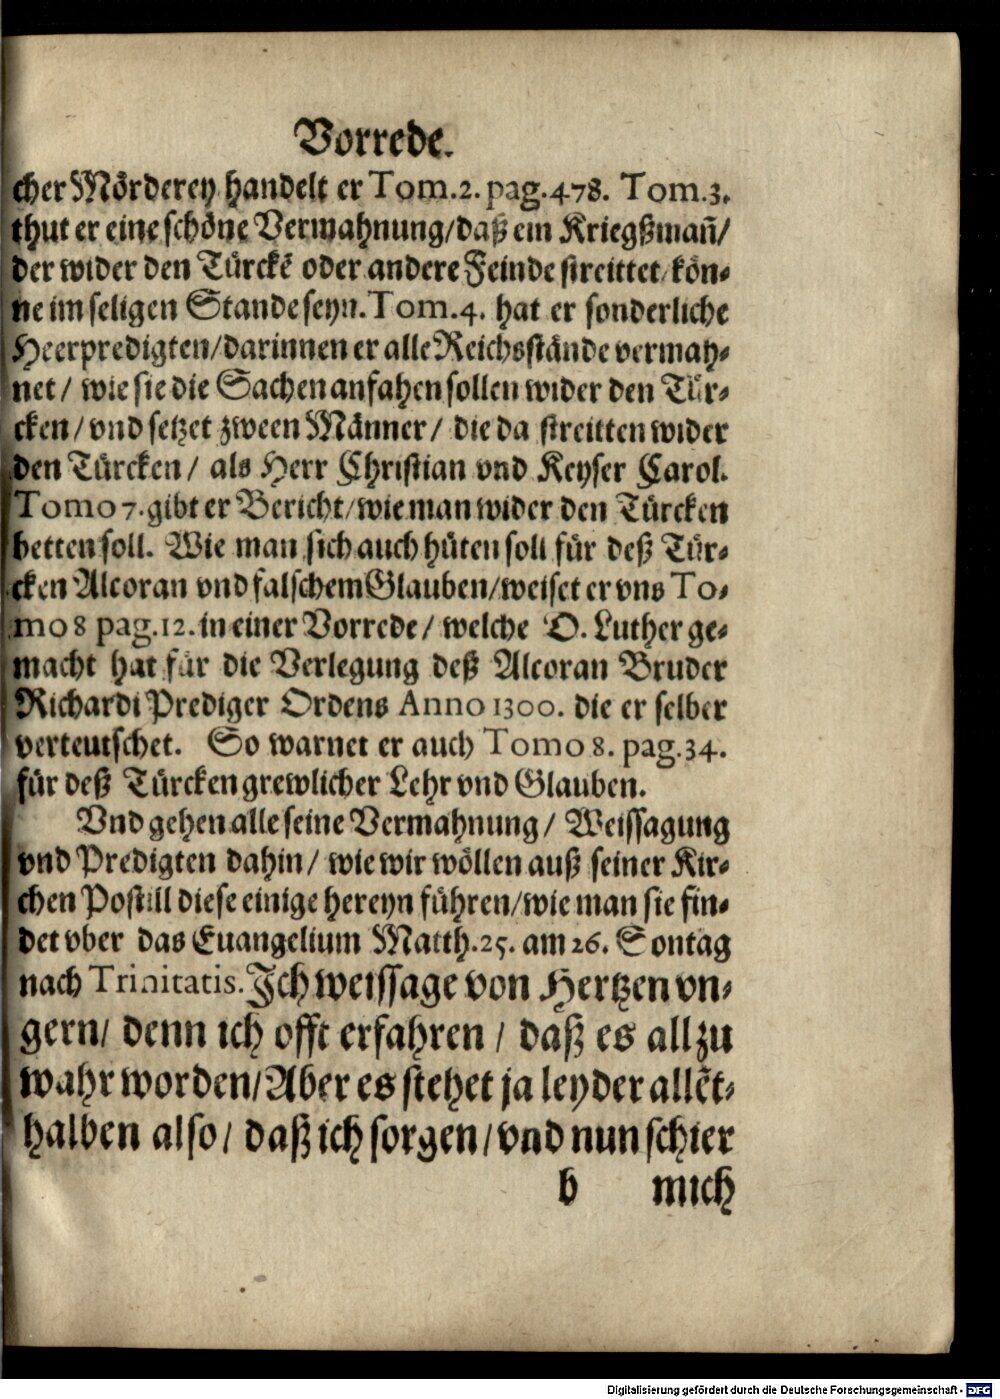 Vorrede.
cher Mörderey handelt er Tom.2. pag.478. Tom.3.
thut er eine schöne Vermahnung/daß ein Kriegßmañ/
der wider den Türckẽ oder andere Feinde streittet/kön-
ne im seligen Stande seyn. Tom.4. hat er sonderliche
Heerpredigten/darinnen er alle Reichsstände vermah-
net/ wie sie die Sachen anfahen sollen wider den Tür-
cken/vnd setzet zween Männer/ die da streitten wider
den Türcken/ als Herr Christian vnd Keyser Carol.
Tomo 7. gibt er Bericht/wie man wider den Türcken
betten soll. Wie man sich auch hüten soll für deß Tür-
cken Alcoran vnd falschem Glauben/weiset er vns To-
mo 8 pag.12. in einer Vorrede/ welche D. Luther ge-
macht hat für die Verlegung deß Alcoran Bruder
Richardi Prediger Ordens Anno 1300. die er selber
verteutschet. So warnet er auch Tomo 8. pag.34.
für deß Türcken grewlicher Lehr vnd Glauben.
Vnd gehen alle seine Vermahnung/ Weissagung
vnd Predigten dahin/ wie wir wöllen auß seiner Kir-
chen Postill diese einige hereyn führen/wie man sie fin-
det vber das Euangelium Matth.25. am 26. Sontag
nach Trinitatis. Ich weissage von Hertzen vn-
gern/ denn ich offt erfahren/ daß es all zu
wahr worden/Aber es stehet ja leyder allẽt-
halben also/ daß ich sorgen/vnd nun schier
b mich
Digitalisierung gefördert durch die Deutsche Forschungsgemeinschaft - DFG